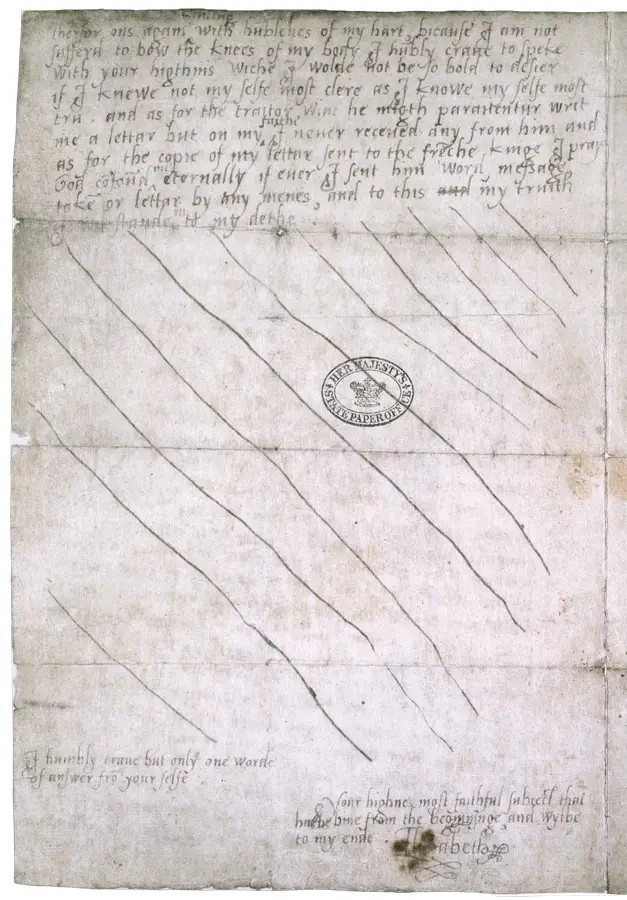 therfor ons again with hublenes of my hart, bicause I am not
sufferd to bow the knees of my body I hubly crave to speke
with your highnis wiche I wolde not be so bold to desier
if I knewe not my selfe most clere as I knowe my selfe most
tru. and as for the traitor Wiat he migth paraventur writ
me a lettar but on my faithe I never receved any from him and
as for the copie of my lettar sent to the freche kinge I pray
God cofound me eternally if ever I sent him word, message,
token or lettar by any menes, and to this and my truith
I stande to my dethe
HER MAJESTY'S
STATE PAPER OFFICE
I humbly crave but only one worde
of answer fro your selfe
Your highnes most faithful subject that
hathe bine from the beginninge, and wylbe
to my ende
Elizabeth